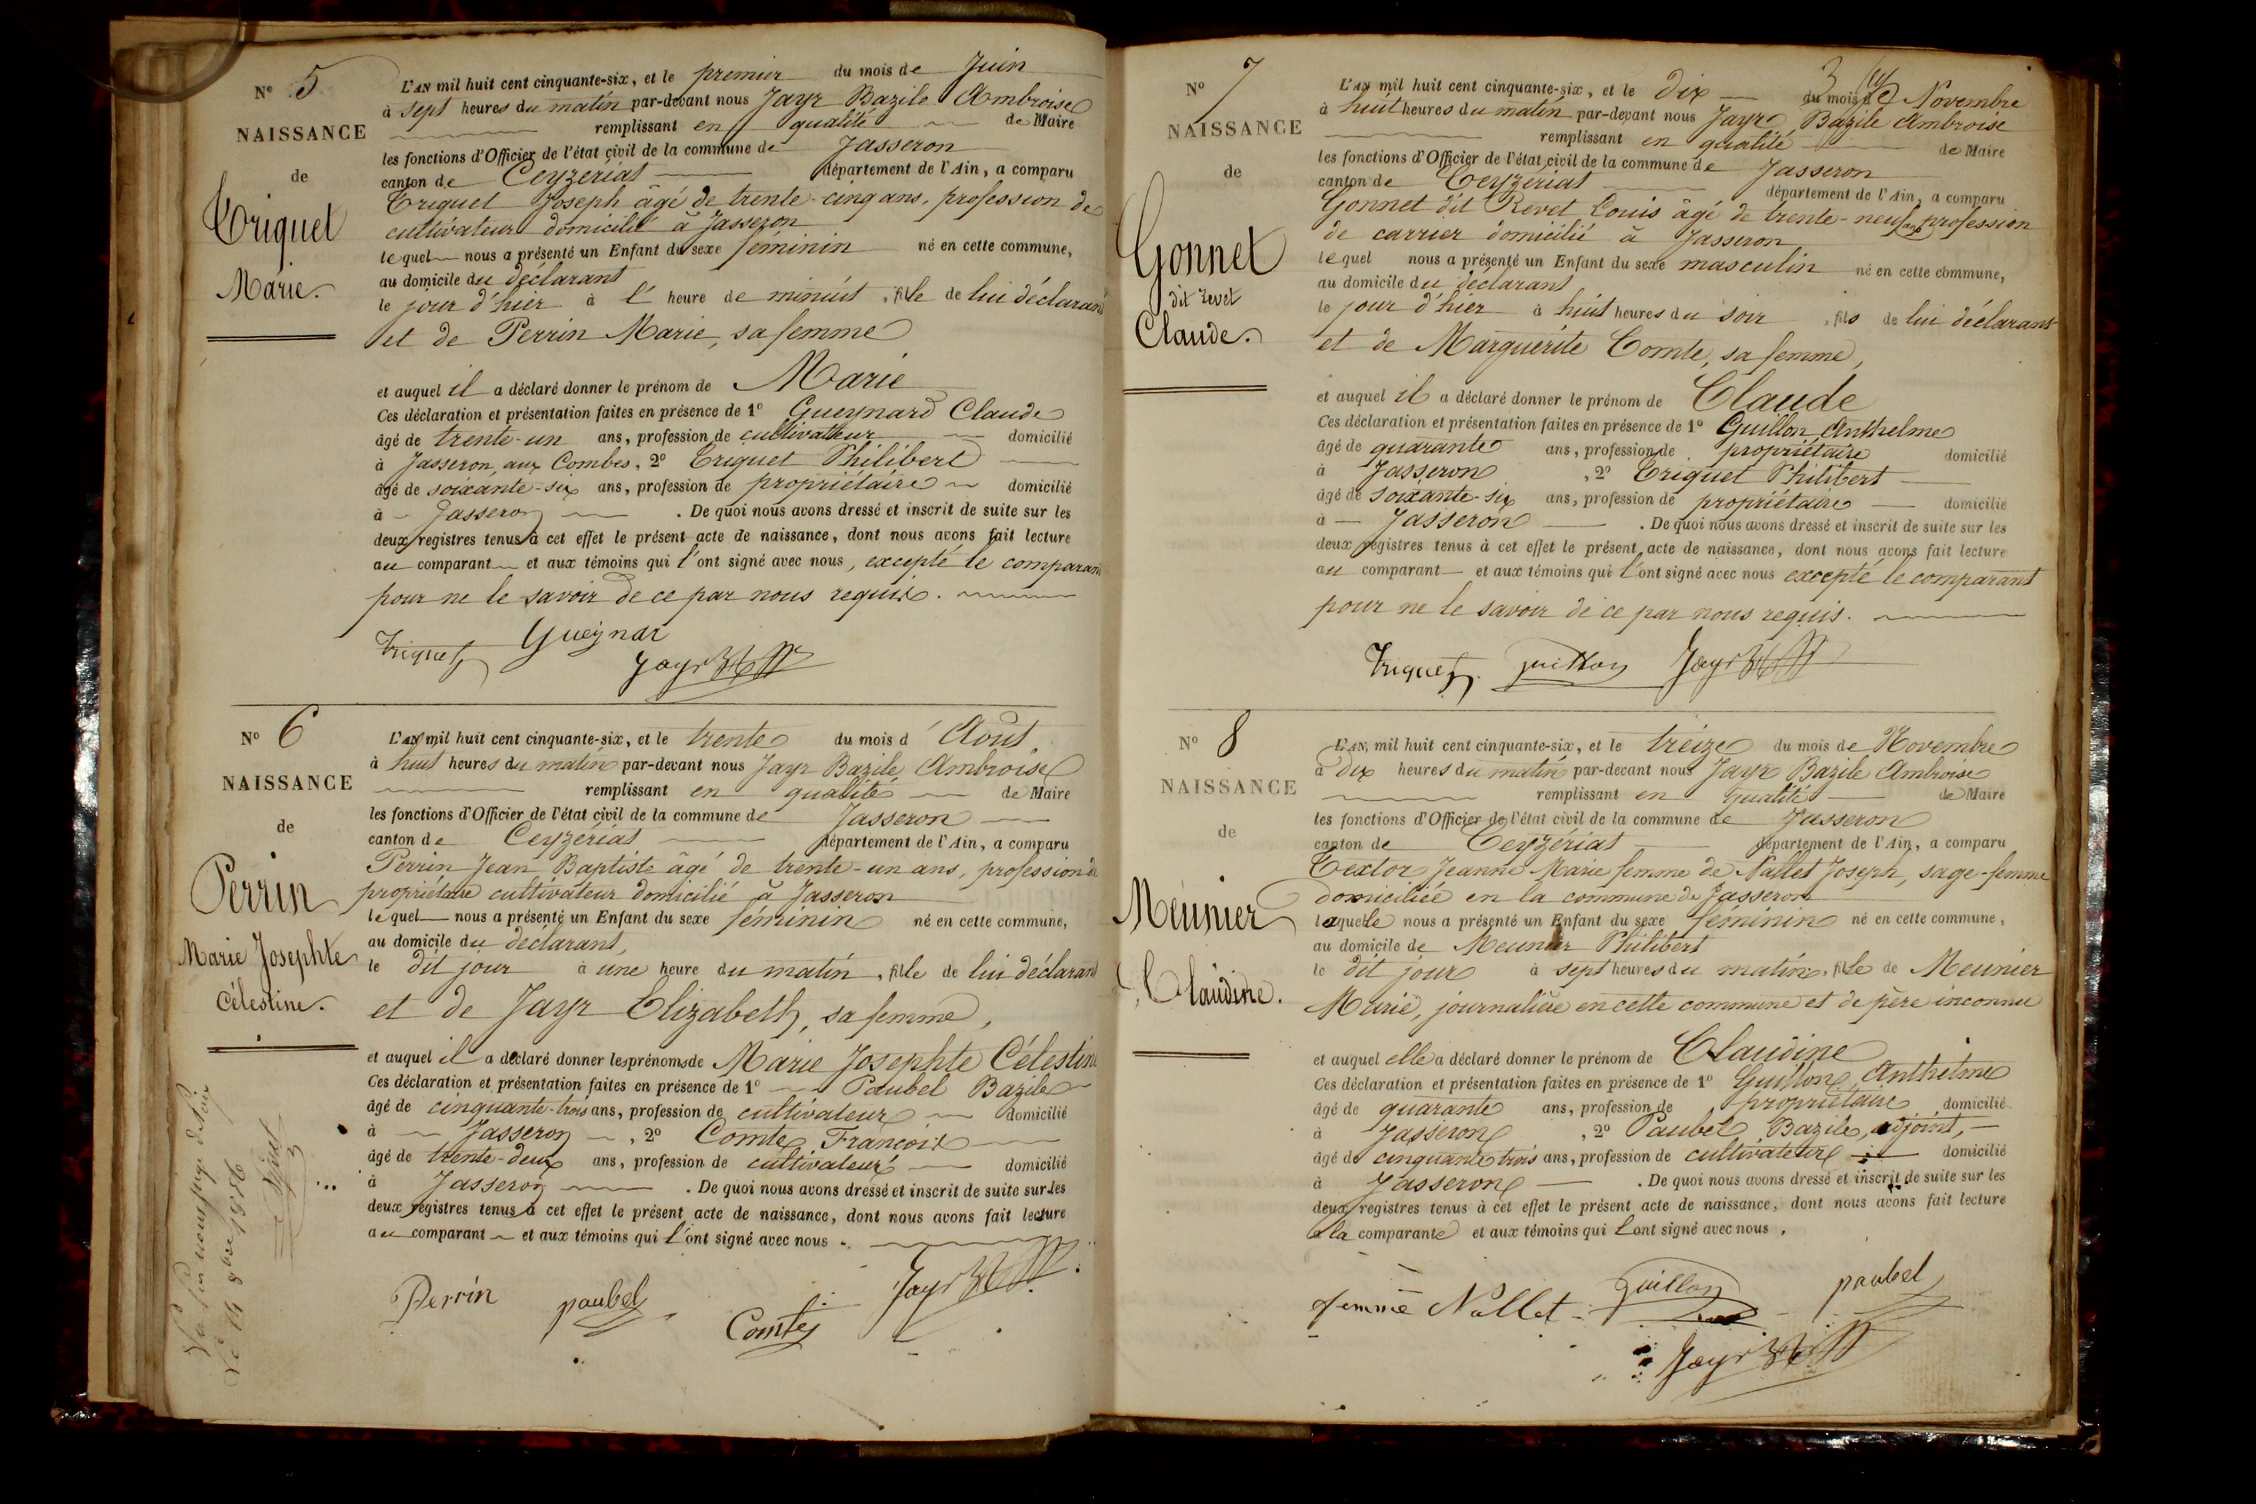 N° 5
NAISSANCE
de
Triquet
Marie.
L'AN mil huit cent cinquante-six, et le premier du mois de Juin
à sept heures du matin par-devant nous Jayr Bazile Ambroise
remplissant en qualité de Maire
les fonctions d'Officier de l'état civil de la commune de Jasseron
canton de Ceyzériat département de l'Ain, a comparu
Triquet Joseph âgé de trente-cinq ans, profession de
cultivateur domicilié à Jasseron
lequel nous a présenté un Enfant du sexe féminin né en cette commune,
au domicile du déclarant
le jour d'hier à l' heure de minuit, fille de lui déclarant
et de Perrin Marie, sa femme
et auquel il a déclaré donner le prénom de Marie
Ces déclaration et présentation faites en présence de 1° Gueynard Claude
âgé de trente-un ans, profession de cultivateur domicilié
à Jasseron, aux Combes, 2° Triquet Philibert
âgé de soixante-six ans, profession de propriétaire domicilié
à Jasseron. De quoi nous avons dressé et inscrit de suite sur les
deux registres tenus à cet effet le présent acte de naissance, dont nous avons fait lecture
au comparant et aux témoins qui l'ont signé avec nous, excepté le comparant
pour ne le savoir de ce par nous requis.
Triquet Gueynar
Jayr
N° 6
NAISSANCE
de
Perrin
Marie Josephte
Célestine.
L'AN mil huit cent cinquante-six, et le trente du mois d'Août
à huit heures du matin par-devant nous Jayr Bazile Ambroise
remplissant en qualité de Maire
les fonctions d'Officier de l'état civil de la commune de Jasseron
canton de Ceyzériat département de l'Ain, a comparu
Perrin Jean Baptiste âgé de trente-un ans, profession de
propriétaire cultivateur domicilié à Jasseron
lequel nous a présenté un Enfant du sexe féminin né en cette commune,
au domicile du déclarant,
le dit jour à une heure du matin, fille de lui déclarant
et de Jayr Elizabeth, sa femme,
et auquel il a déclaré donner les prénoms de Marie Josephte Célestine
Ces déclaration et présentation faites en présence de 1° Paubel Bazile
âgé de cinquante-trois ans, profession de cultivateur domicilié
à Jasseron, 2° Comte François
âgé de trente-deux ans, profession de cultivateur domicilié
à Jasseron. De quoi nous avons dressé et inscrit de suite sur les
deux registres tenus à cet effet le présent acte de naissance, dont nous avons fait lecture
au comparant et aux témoins qui l'ont signé avec nous.
Perrin paubel Comte Jayr
N° 7
NAISSANCE
de
Gonnet
dit Revet
Claude.
L'AN mil huit cent cinquante-six, et le dix du mois de Novembre
à huit heures du matin par-devant nous Jayr Bazile Ambroise
remplissant en qualité de Maire
les fonctions d'Officier de l'état civil de la commune de Jasseron
canton de Ceyzériat département de l'Ain, a comparu
Gonnet dit Revet Louis âgé de trente-neuf ans profession
de carrier domicilié à Jasseron
lequel nous a présenté un Enfant du sexe masculin né en cette commune,
au domicile du déclarant
le jour d'hier à huit heures du soir, fils de lui déclarant
et de Marguerite Comte, sa femme,
et auquel il a déclaré donner le prénom de Claude
Ces déclaration et présentation faites en présence de 1° Guillon Anthelme
âgé de quarante ans, profession de propriétaire domicilié
à Jasseron, 2° Triquet Philibert
âgé de soixante-six ans, profession de propriétaire domicilié
à Jasseron. De quoi nous avons dressé et inscrit de suite sur les
deux registres tenus à cet effet le présent acte de naissance, dont nous avons fait lecture
au comparant et aux témoins qui l'ont signé avec nous excepté le comparant
pour ne le savoir de ce par nous requis.
Triquet guillon Jayr
N° 8
NAISSANCE
de
Meunier
Claudine.
L'AN mil huit cent cinquante-six, et le treize du mois de Novembre
à dix heures du matin par-devant nous Jayr Bazile Ambroise
remplissant en qualité de Maire
les fonctions d'Officier de l'état civil de la commune de Jasseron
canton de Ceyzériat département de l'Ain, a comparu
Textor Jeanne Marie femme de Nallet Joseph, sage-femme
domiciliée en la commune de Jasseron
laquelle nous a présenté un Enfant du sexe féminin né en cette commune,
au domicile de Meunier Philibert
le dit jour à sept heures du matin, fille de Meunier
Marie, journalière en cette commune et de père inconnu
et auquel elle a déclaré donner le prénom de Claudine
Ces déclaration et présentation faites en présence de 1° Guillon Anthelme
âgé de quarante ans, profession de propriétaire domicilié
à Jasseron, 2° Paubel Bazile, adjoint,
âgé de cinquante trois ans, profession de cultivateur domicilié
à Jasseron. De quoi nous avons dressé et inscrit de suite sur les
deux registres tenus à cet effet le présent acte de naissance, dont nous avons fait lecture
à la comparante et aux témoins qui l'ont signé avec nous.
femme Nallet guillon paubel
Jayr